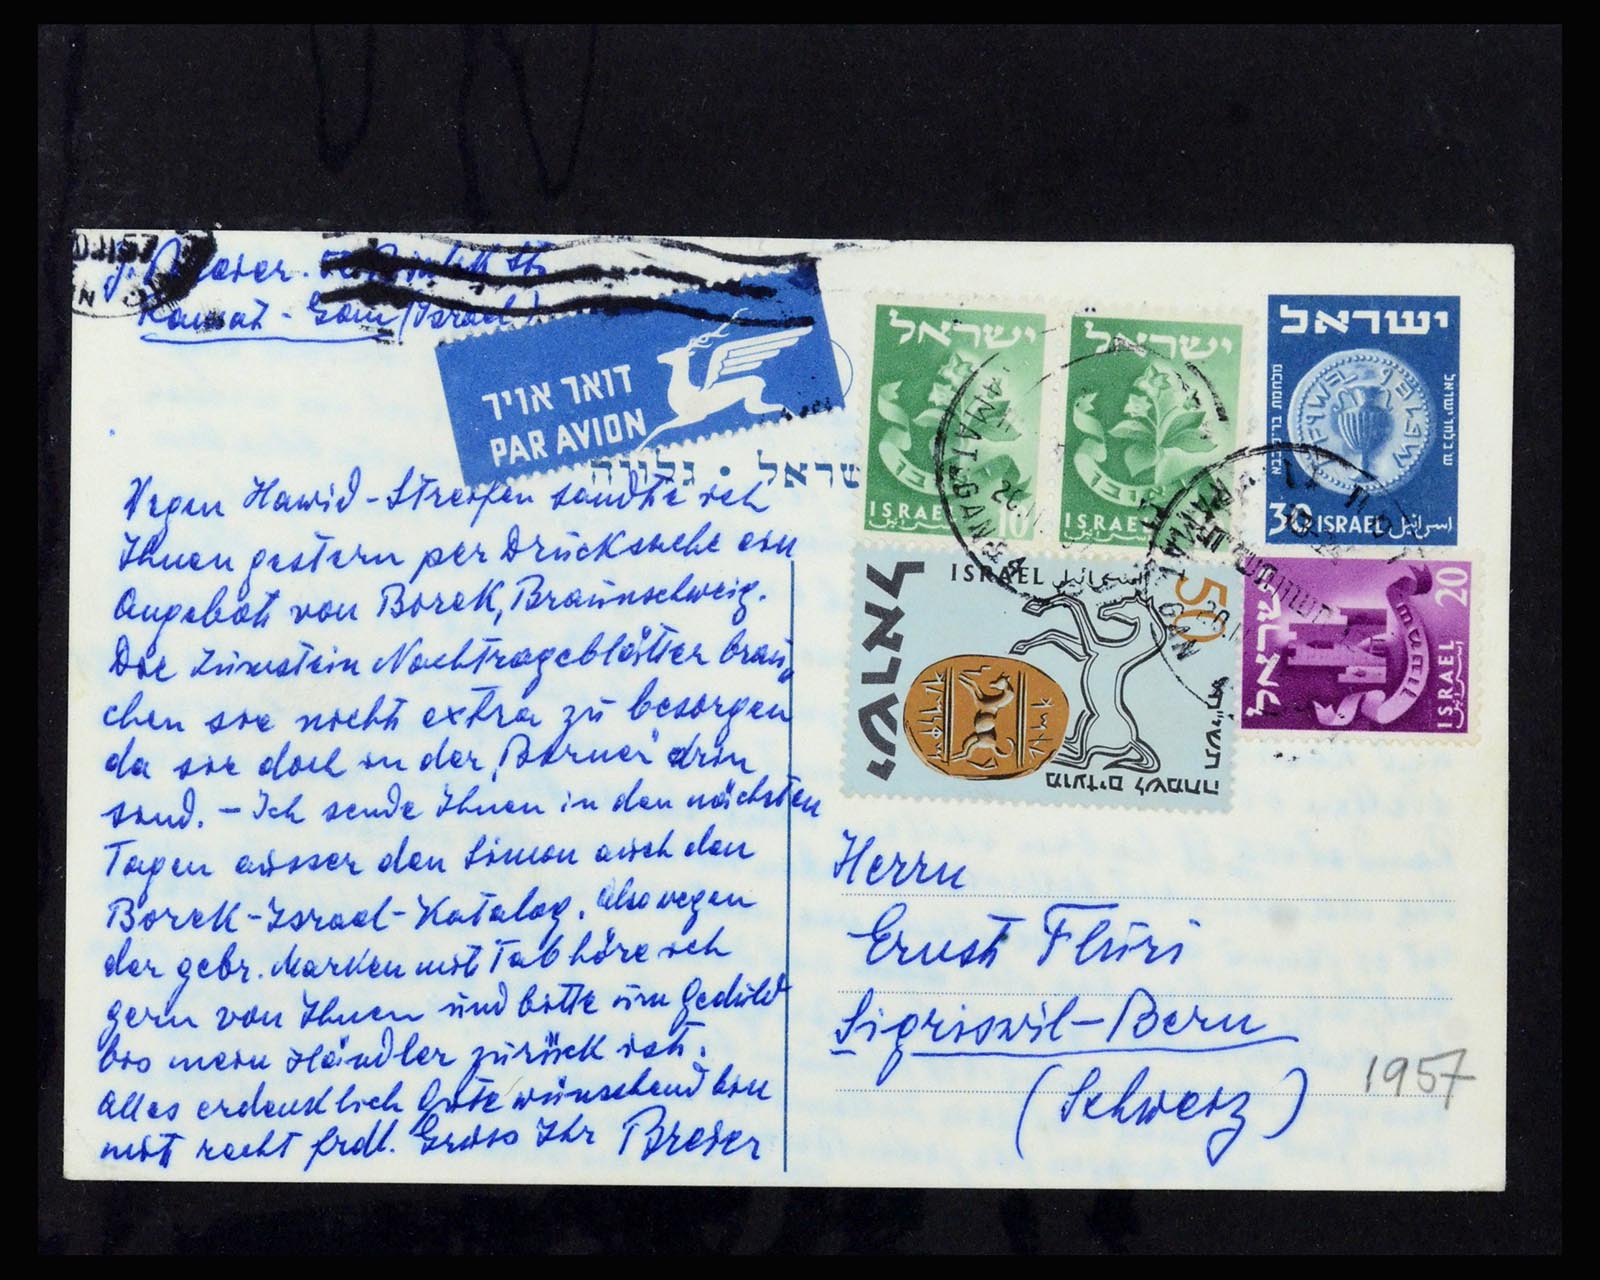 Ramat-Gan (Israel)
דואר אויר
PAR AVION
ישראל
ISRAEL
10
ישראל
ISRAEL
ישראל
30 ISRAEL اسرائيل
ישראל • גלויה
ישראל
ISRAEL اسرائيل
50
מועדים לשמחה
ישראל
ISRAEL
20
RAMAT GAN
Wegen Hawid-Streifen sandte ich
Ihnen gestern per Drucksache ein
Angebot von Borek, Braunschweig.
Die Zumstein Nachtrageblätter brau-
chen sie nicht extra zu besorgen
da sie doch in der "Berner" drin
sind. – Ich sende Ihnen in den nächsten
Tagen ausser den Simon auch den
Borek-Israel-Katalog. Also wegen
der gebr. Marken mit Tab höre ich
gern von Ihnen und bitte um Geduld
bis mein Händler zurück ist.
Alles erdenklich Gute wünschend bin
mit recht frdl. Gruss Ihr Breier
Herrn
Ernst Flüri
Sigriswil-Bern
(Schweiz)
1957